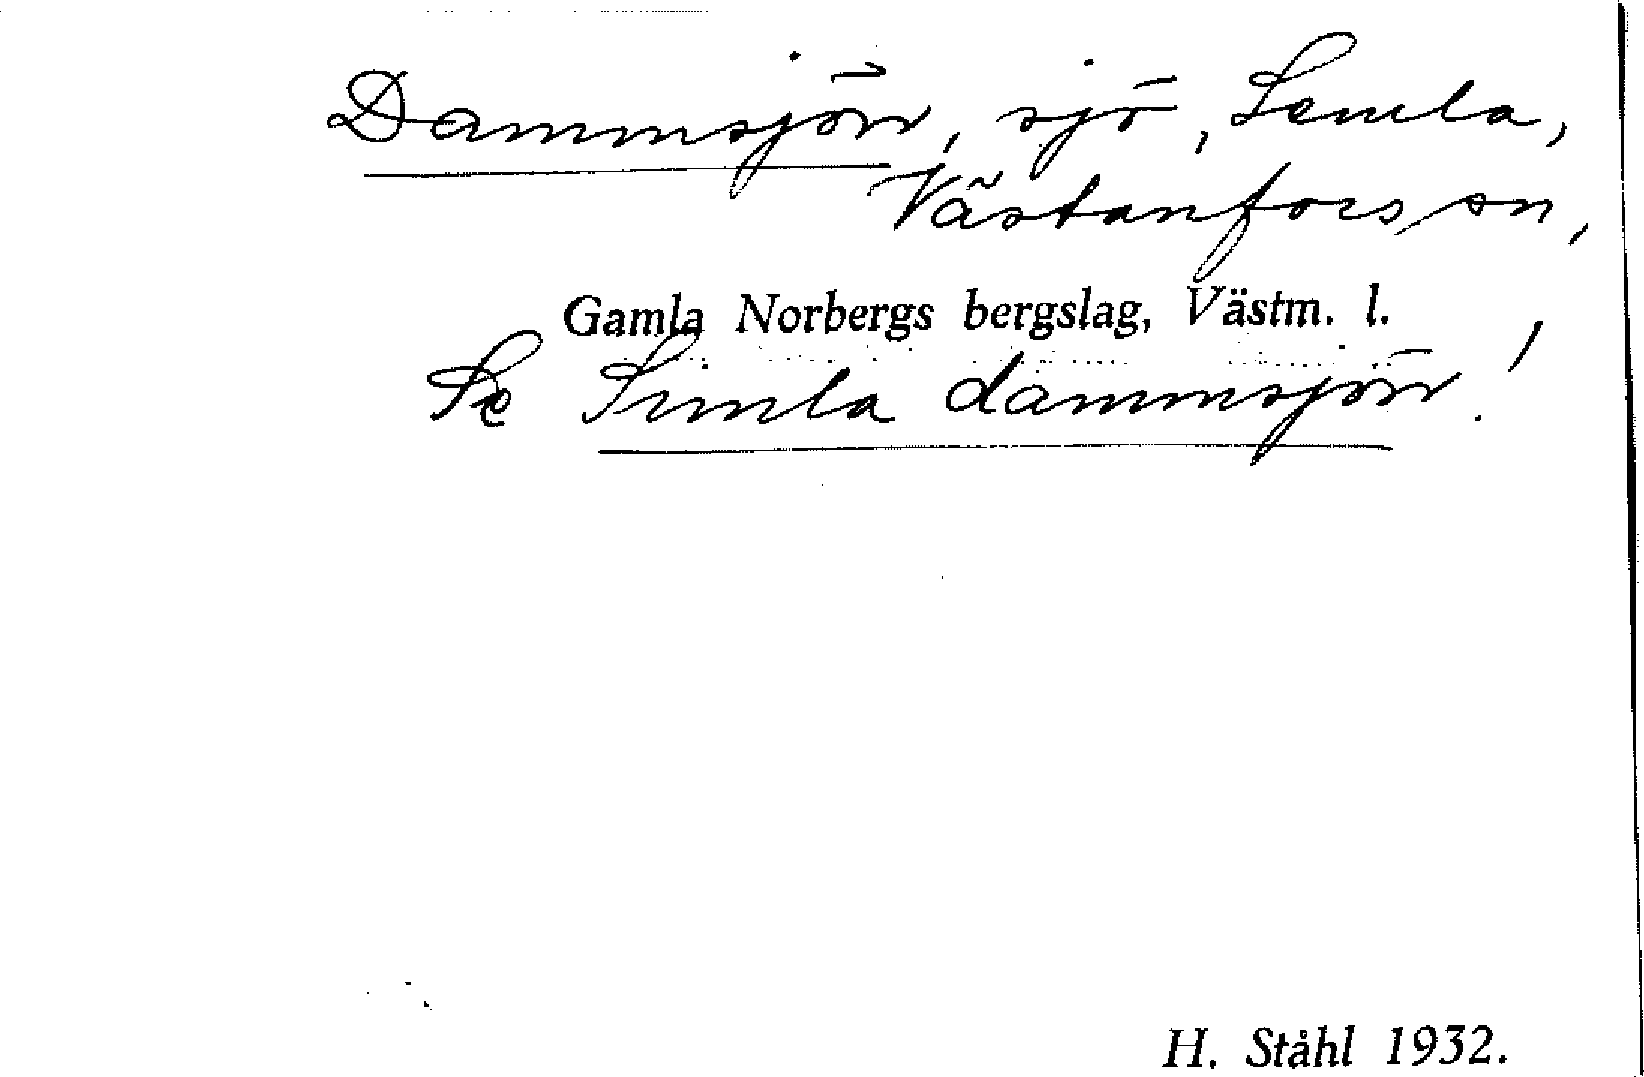 Dammsjön, sjö, Semla,
Västanfors sn,
Gamla Norbergs bergslag, Västm. l.
Se Simla dammsjön!
H. Ståhl 1932.